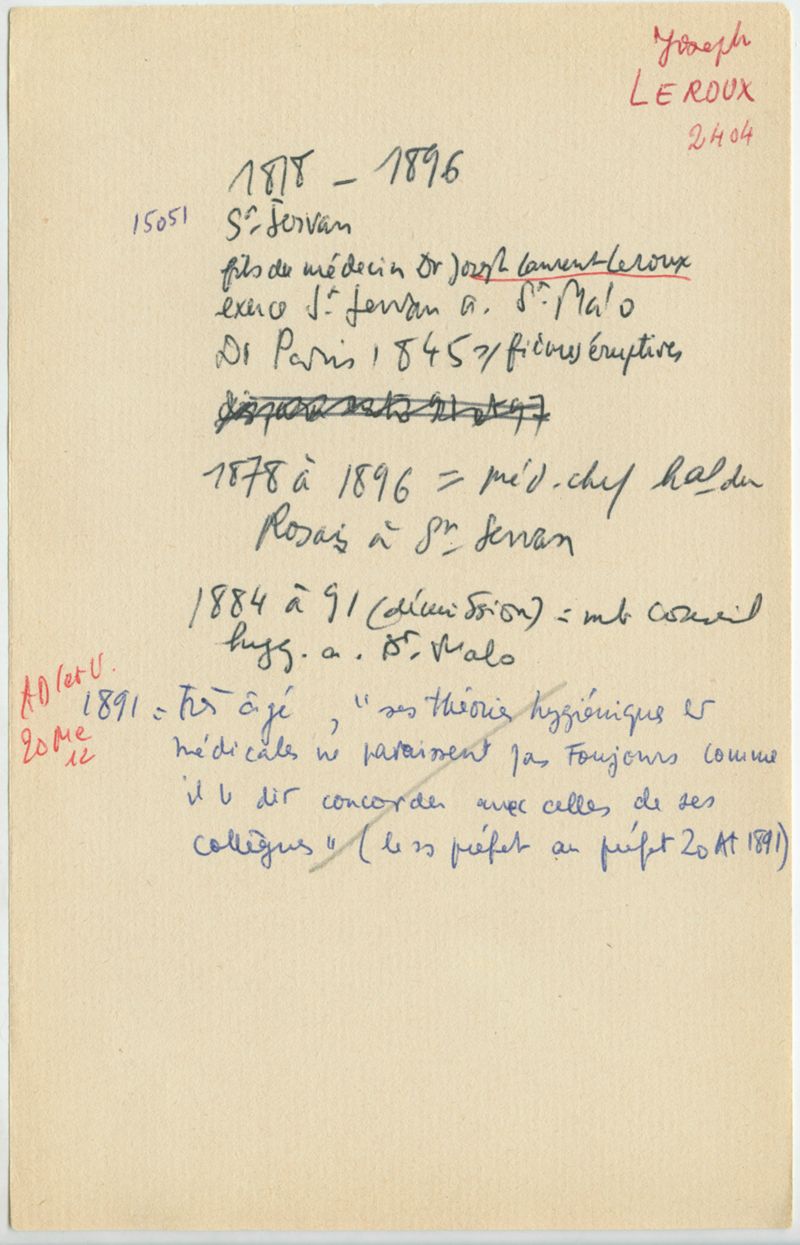 Joseph
LEROUX
2404
1818 - 1896
15051 St-Servan
fils du médecin Dr Joseph Laurent Leroux
exerce St-Servan a. St-Malo
Dr Paris 1845 = fièvres éruptives
1878 à 1896 = méd. chef hal du
Rosais à St-Servan
1884 à 91 (démission) = mb conseil
hygg. a. St-Malo
AD I et V.
20 Me
12
1891 = Très âgé, "ses théories hygiéniques et
médicales ne paraissent pas toujours comme
il le dit concorder avec celles de ses
collègues" (le ss préfet au préfet 20 At 1891)